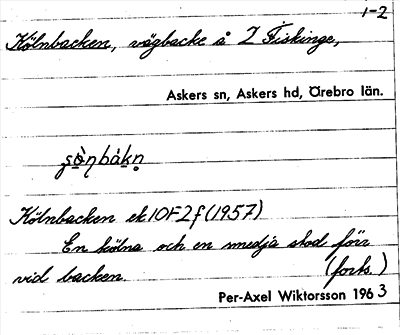 1-2
Kölnbacken, vägbacke å Z Fiskinge,
Askers sn, Askers hd, Örebro län.
Kölnbacken ek 10F2f (1957)
En kölna och en smedja stod förr
vid backen. (forts.)
Per-Axel Wiktorsson 1963